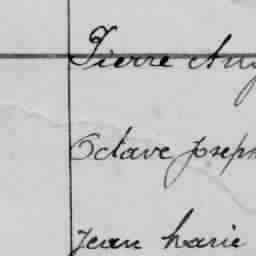 Pierre Aug
Octave Joseph
Jean Marie